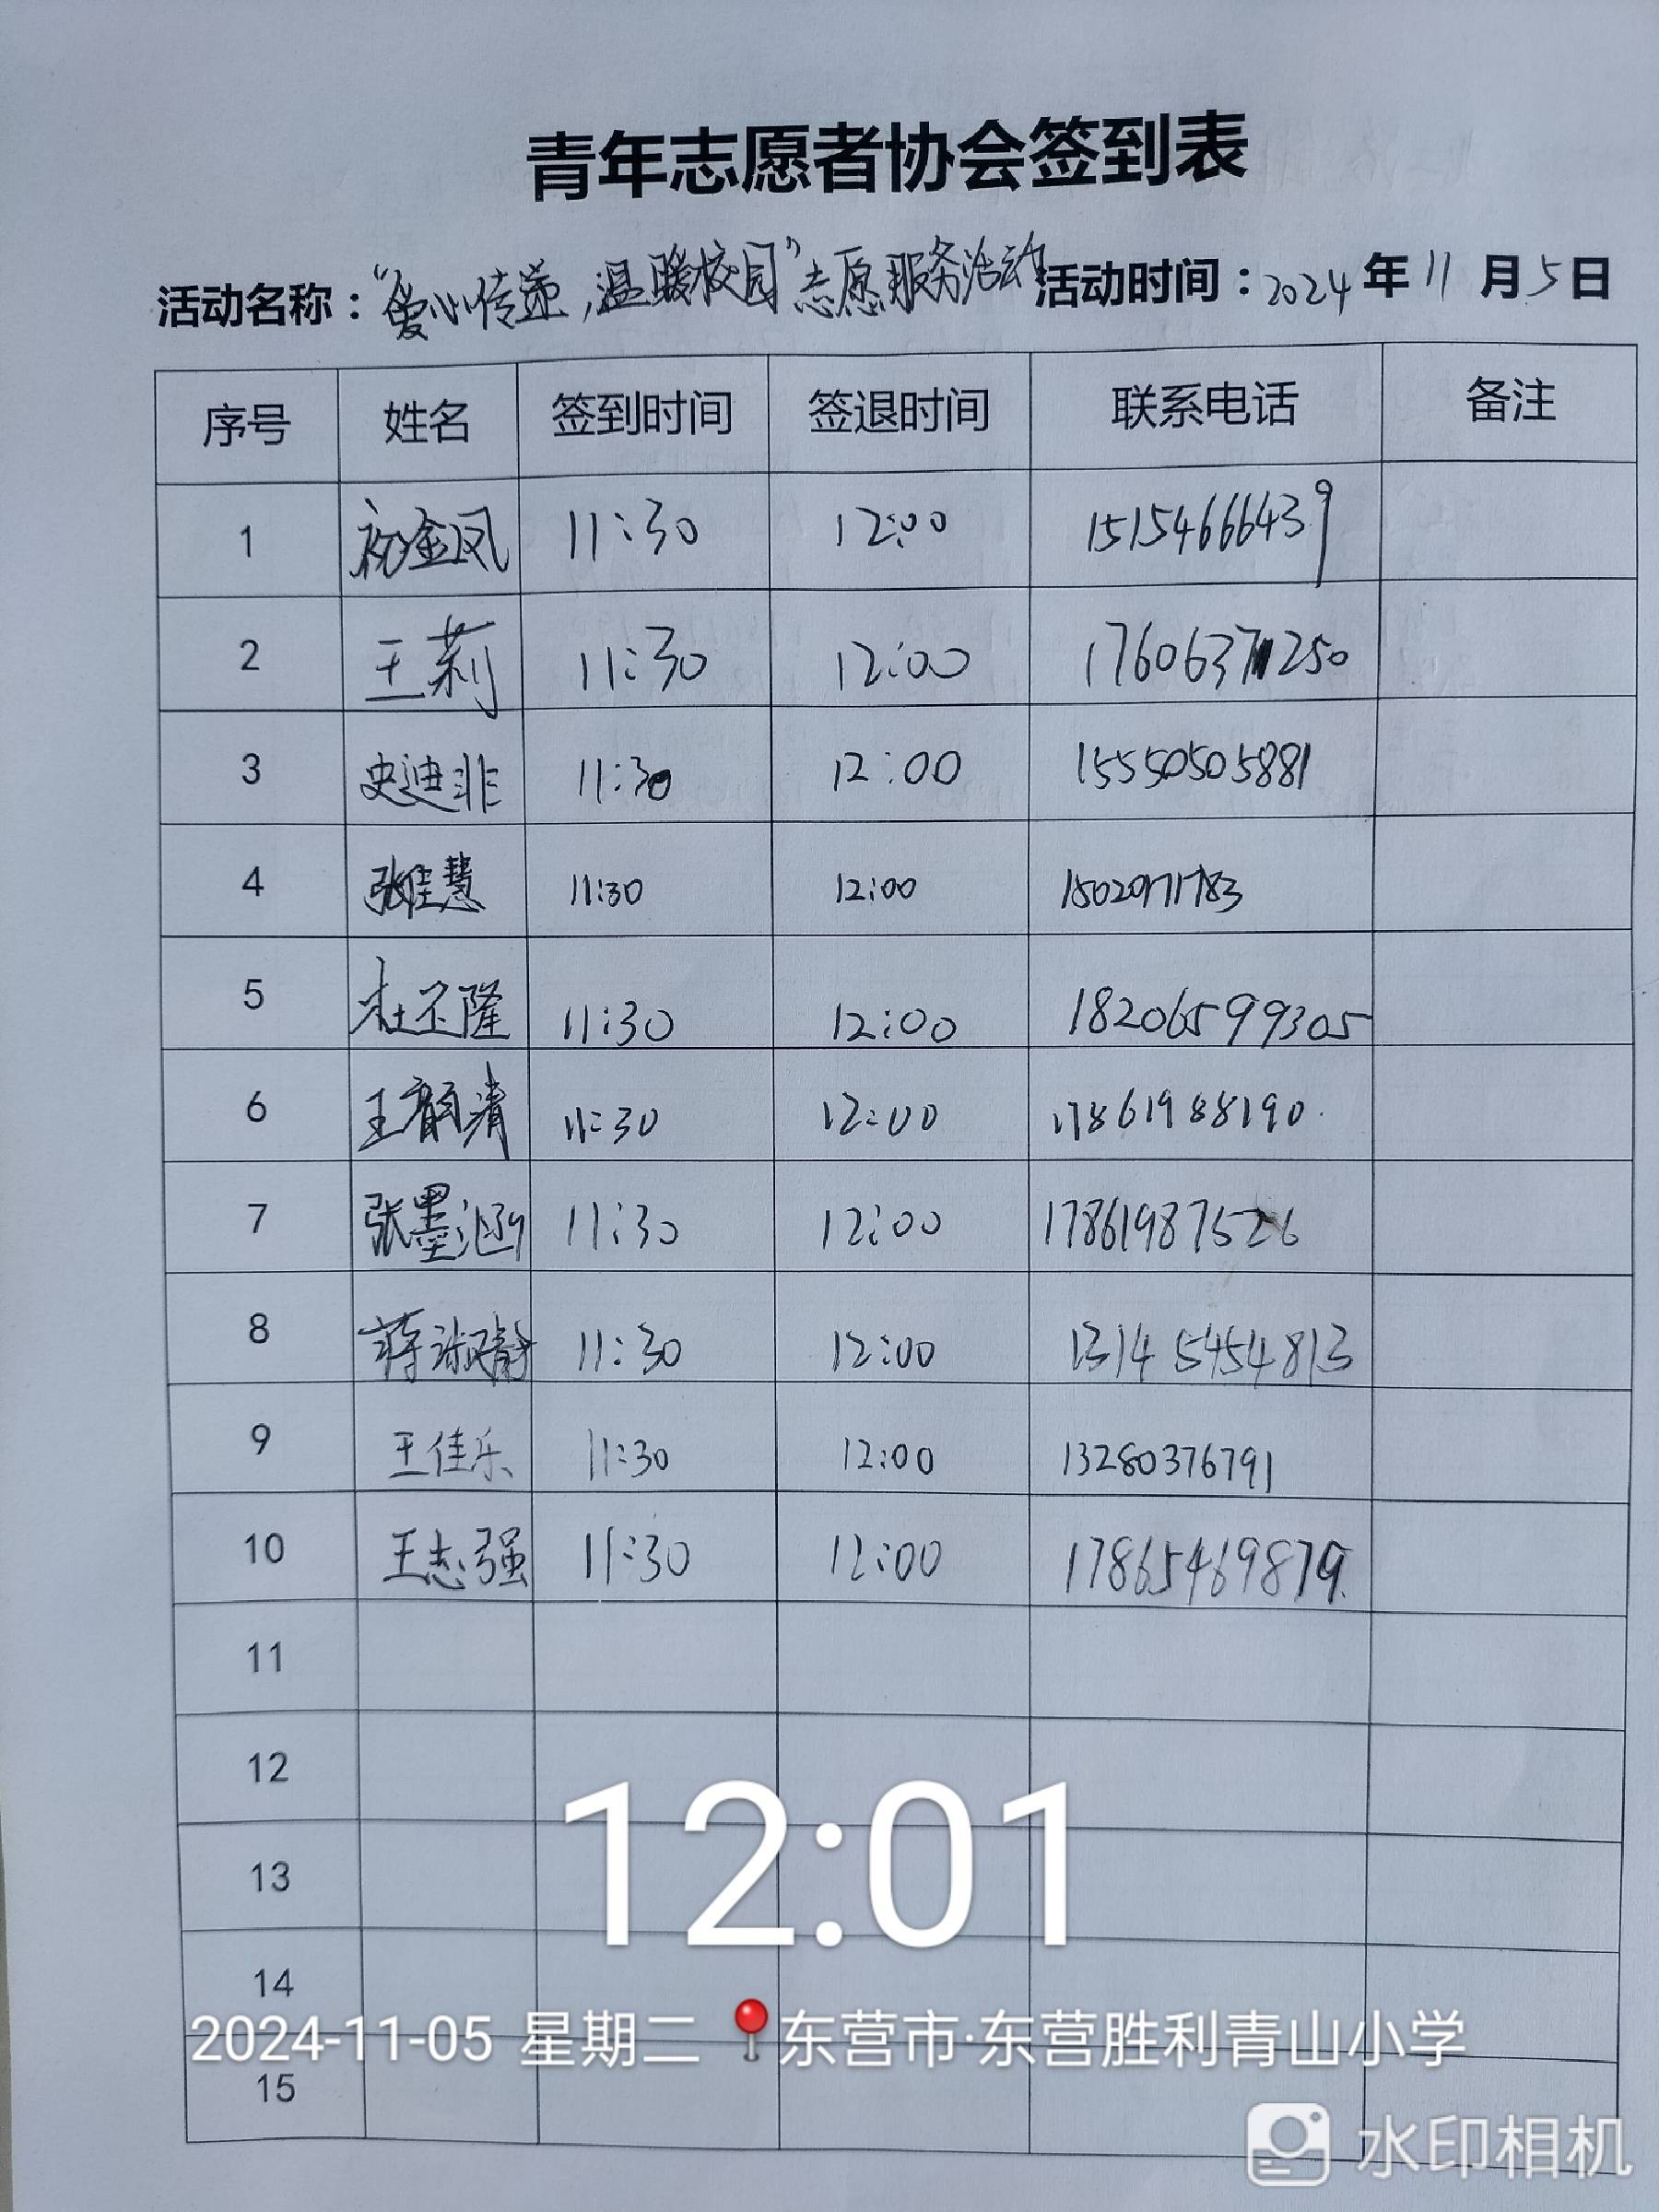 青年志愿者协会签到表
活动名称：“爱心传递，温暖校园”志愿服务活动 活动时间：2024年11月5日
序号 姓名 签到时间 签退时间 联系电话 备注
1 初金凤 11:30 12:00 15154666439
2 王莉 11:30 12:00 1760637250
3 史迪非 11:30 12:00 15550505881
4 张佳慧 11:30 12:00
5 杜丕隆 11:30 12:00 18206599305
6 王韵清 11:30 12:00 17861988190
7 张墨涵 11:30 12:00 17861987526
8 蒋淑静 11:30 12:00 13145454813
9 王佳乐 11:30 12:00 13280376791
10 王志强 11:30 12:00 17865469879
11
12
12:01
13
14
2024-11-05 星期二 东营市·东营胜利青山小学
15
水印相机